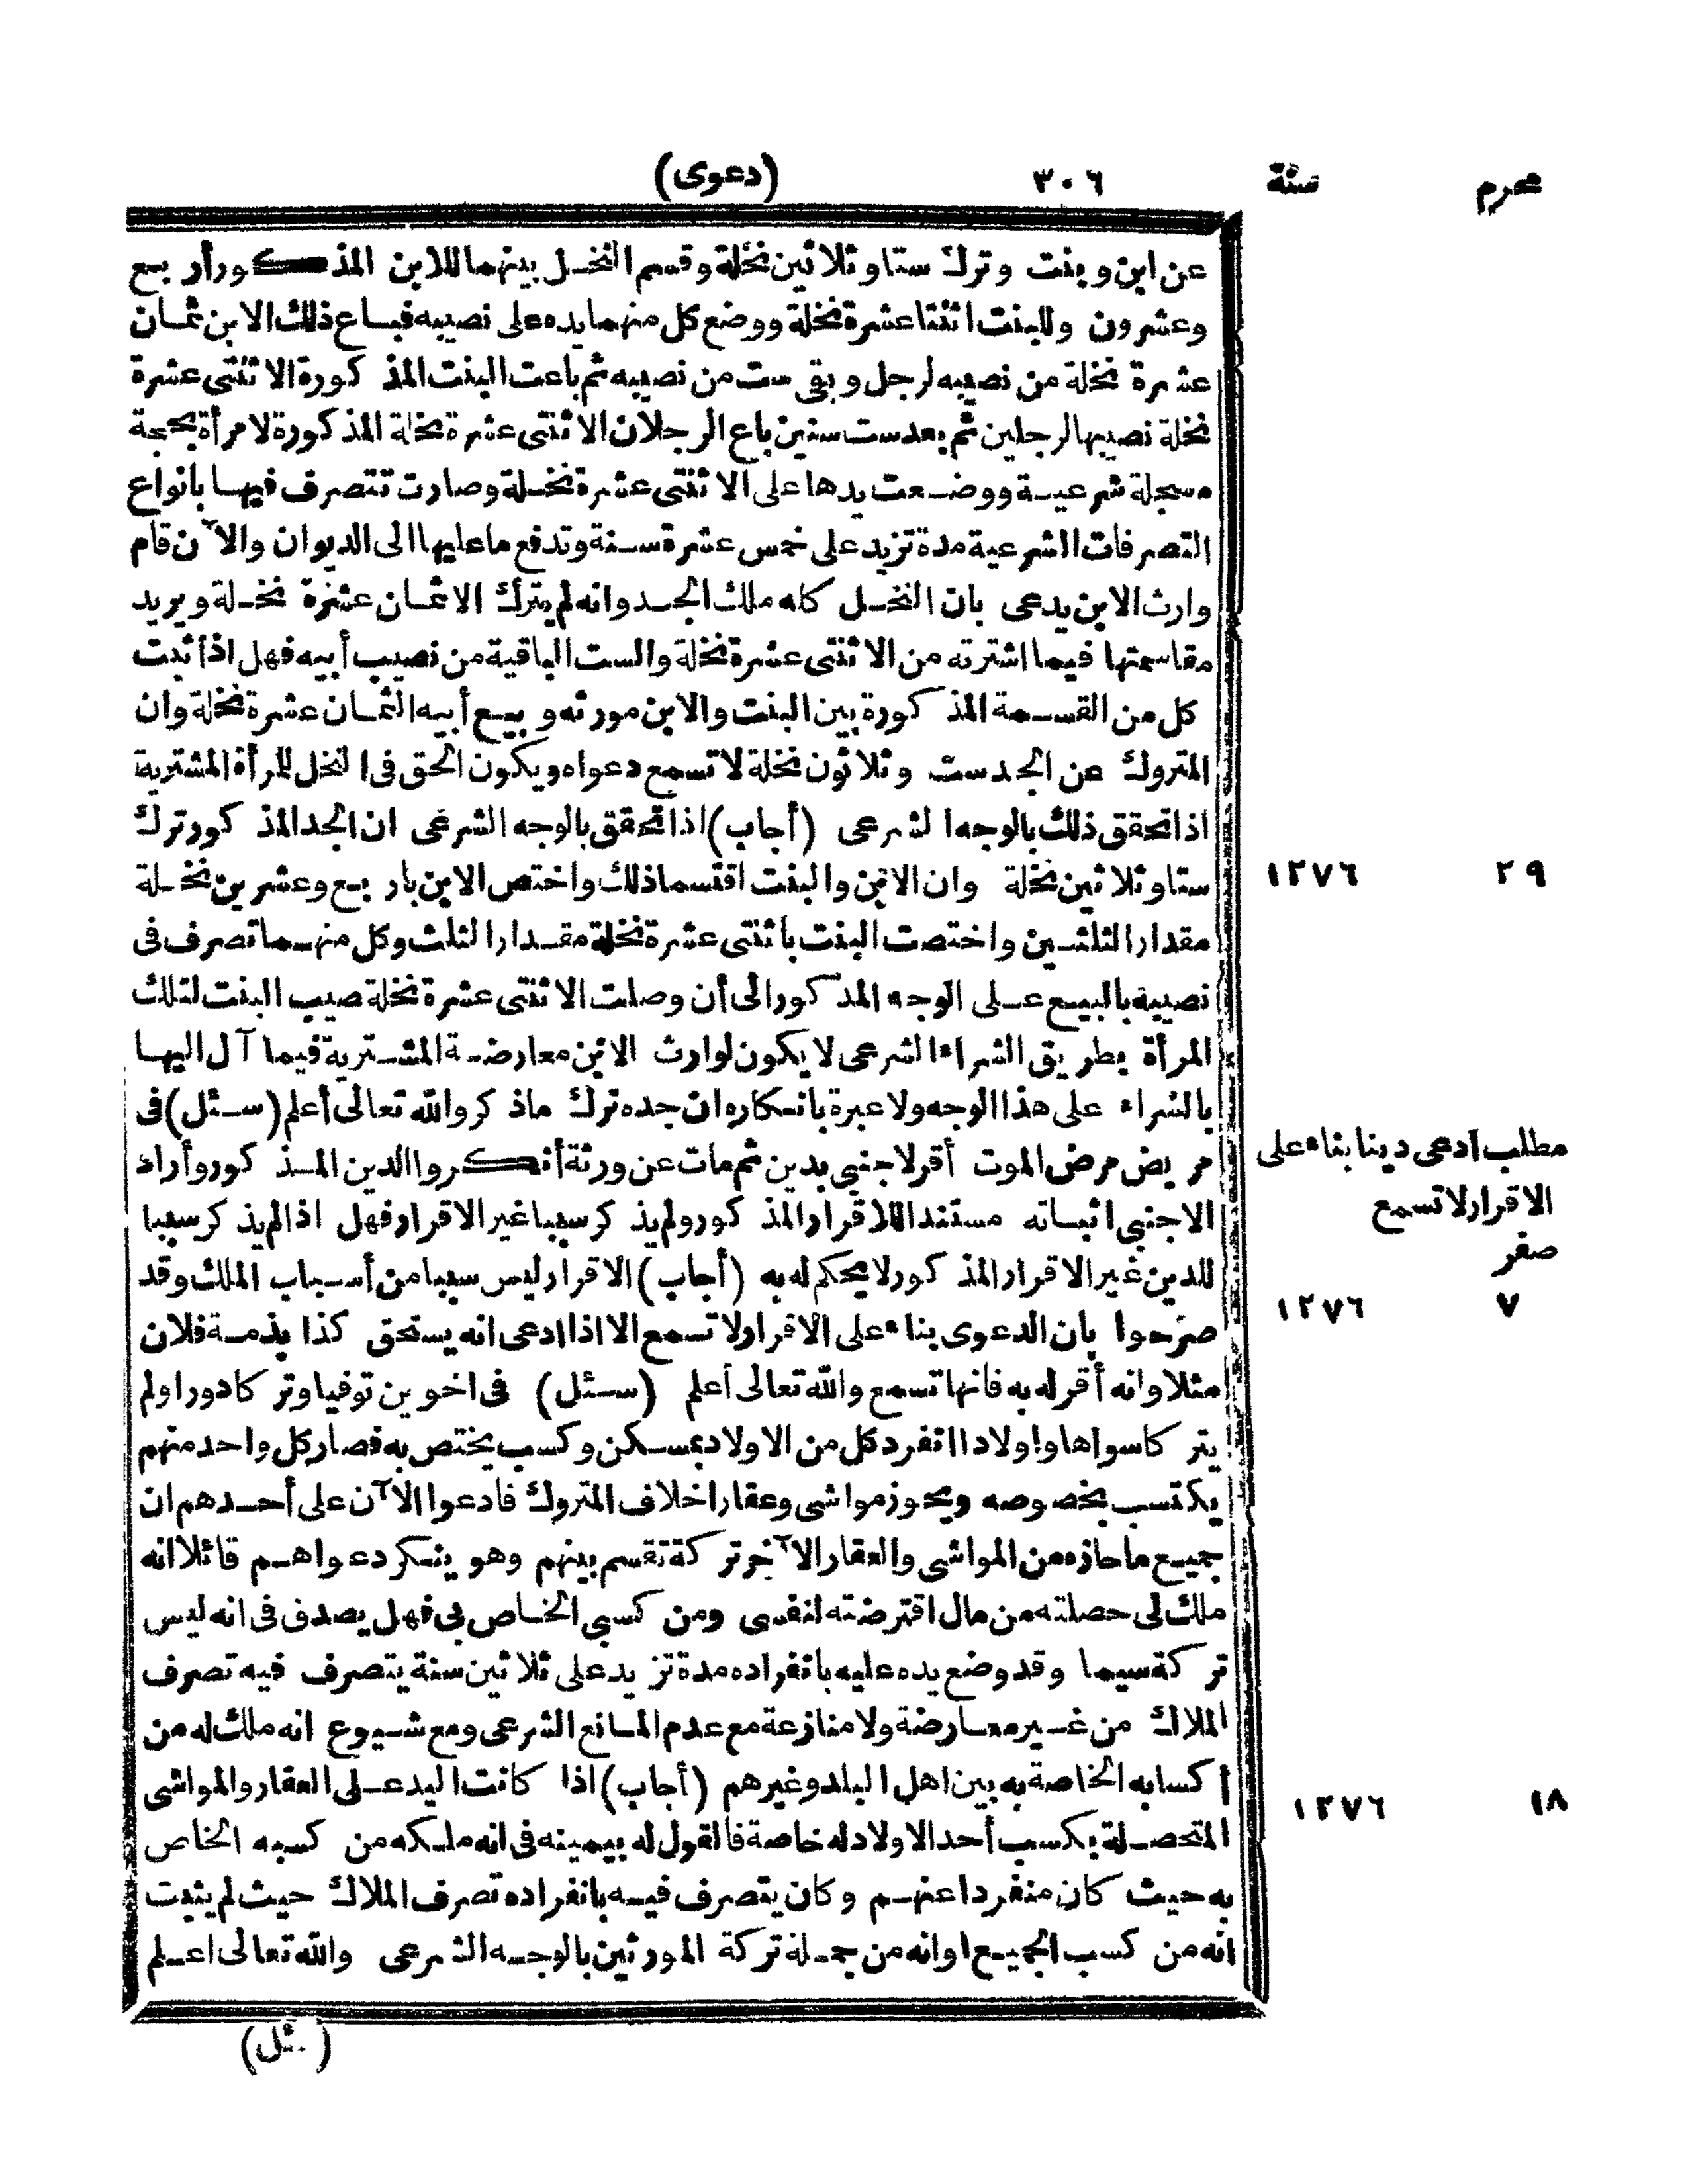 محرم سنة ٣٠٦ (دعوى)
عن ابن وبنت وترك ستا وثلاثين نخلة وقسم النخل بينهما للابن المذكور أربع
وعشرون وللبنت اثنتا عشرة نخلة ووضع كل منهما يده على نصيبه فباع ذلك الابن ثمان
عشرة نخلة من نصيبه لرجل وبقى ست من نصيبه ثم باعت البنت المذكورة الاثنتى عشرة
نخلة نصيبها لرجلين ثم بعد ست سنين باع الرجلان الاثنتى عشرة نخلة المذكورة لامرأة بحجة
مسجلة شرعية ووضعت يدها على الاثنتى عشرة نخلة وصارت تتصرف فيها بانواع
التصرفات الشرعية مدة تزيد على خمس عشرة سنة وتدفع ما عليها الى الديوان والآن قام
وارث الابن يدعى بان النخل كله ملك الجد وانه لم يترك الا ثمان عشرة نخلة ويريد
مقاسمتها فيما اشترته من الاثنتى عشرة نخلة والست الباقية من نصيب أبيه فهل اذا ثبت
كل من القسمة المذكورة بين البنت والابن مورثه وبيع أبيه الثمان عشرة نخلة وان
المتروك عن الجد ست وثلاثون نخلة لا تسمع دعواه ويكون الحق فى النخل للمرأة المشترية
اذا تحقق ذلك بالوجه الشرعى (أجاب) اذا تحقق بالوجه الشرعى ان الجد المذكور ترك
ستا وثلاثين نخلة وان الابن والبنت اقتسما ذلك واختص الابن باربع وعشرين نخلة
٢٩ ١٢٧٦
مقدار الثلثين واختصت البنت باثنتى عشرة نخلة مقدار الثلث وكل منهما تصرف فى
نصيبه بالبيع على الوجه المذكور الى أن وصلت الاثنتى عشرة نخلة صيب البنت لتلك
المرأة بطريق الشراء الشرعى لا يكون لوارث الابن معارضة المشترية فيما آل اليها
بالشراء على هذا الوجه ولا عبرة بانكاره ان جده ترك ماذكر والله تعالى أعلم (سئل) فى
مريض مرض الموت أقر لاجنبي بدين ثم مات عن ورثة أنكروا الدين المذكور وأراد
الاجنبي اثباته مستندا للاقرار المذكور ولم يذكر سببا غير الاقرار فهل اذا لم يذكر سببا
للدين غير الاقرار المذكور لا يحكم له به (أجاب) الاقرار ليس سببا من أسباب الملك وقد
صرحوا بان الدعوى بناء على الاقرار لا تسمع الا اذا ادعى انه يستحق كذا بذمة فلان
مثلا وانه أقر له به فانها تسمع والله تعالى أعلم (سئل) فى اخوين توفيا وتركا دورا ولم
مطلب ادعى دينا بناء على
الاقرار لا تسمع
صفر
٧ ١٢٧٦
يتركا سواها واولادا انفرد كل من الاولاد بمسكن وكسب يختص به فصار كل واحد منهم
يكتسب بخصوصه ويحوز مواشى وعقارا خلاف المتروك فادعوا الآن على أحدهم ان
جميع ما حازه من المواشى والعقار الآخر تركة تقسم بينهم وهو ينكر دعواهم قائلا انه
ملك لى حصلته من مال اقترضته لنفسى ومن كسبي الخاص بى فهل يصدق فى انه ليس
تركة سيما وقد وضع يده عليه بانفراده مدة تزيد على ثلاثين سنة يتصرف فيه تصرف
الملاك من غير معارضة ولا منازعة مع عدم المانع الشرعى ومع شيوع انه ملك له من
أكسابه الخاصة به بين اهل البلد وغيرهم (أجاب) اذا كانت اليد على العقار والمواشى
المتحصلة بكسب أحد الاولاد له خاصة فالقول له بيمينه فى انه ملكه من كسبه الخاص
١٨ ١٢٧٦
به حيث كان منفردا عنهم وكان يتصرف فيه بانفراده تصرف الملاك حيث لم يثبت
انه من كسب الجميع او انه من جملة تركة المورثين بالوجه الشرعى والله تعالى اعلم